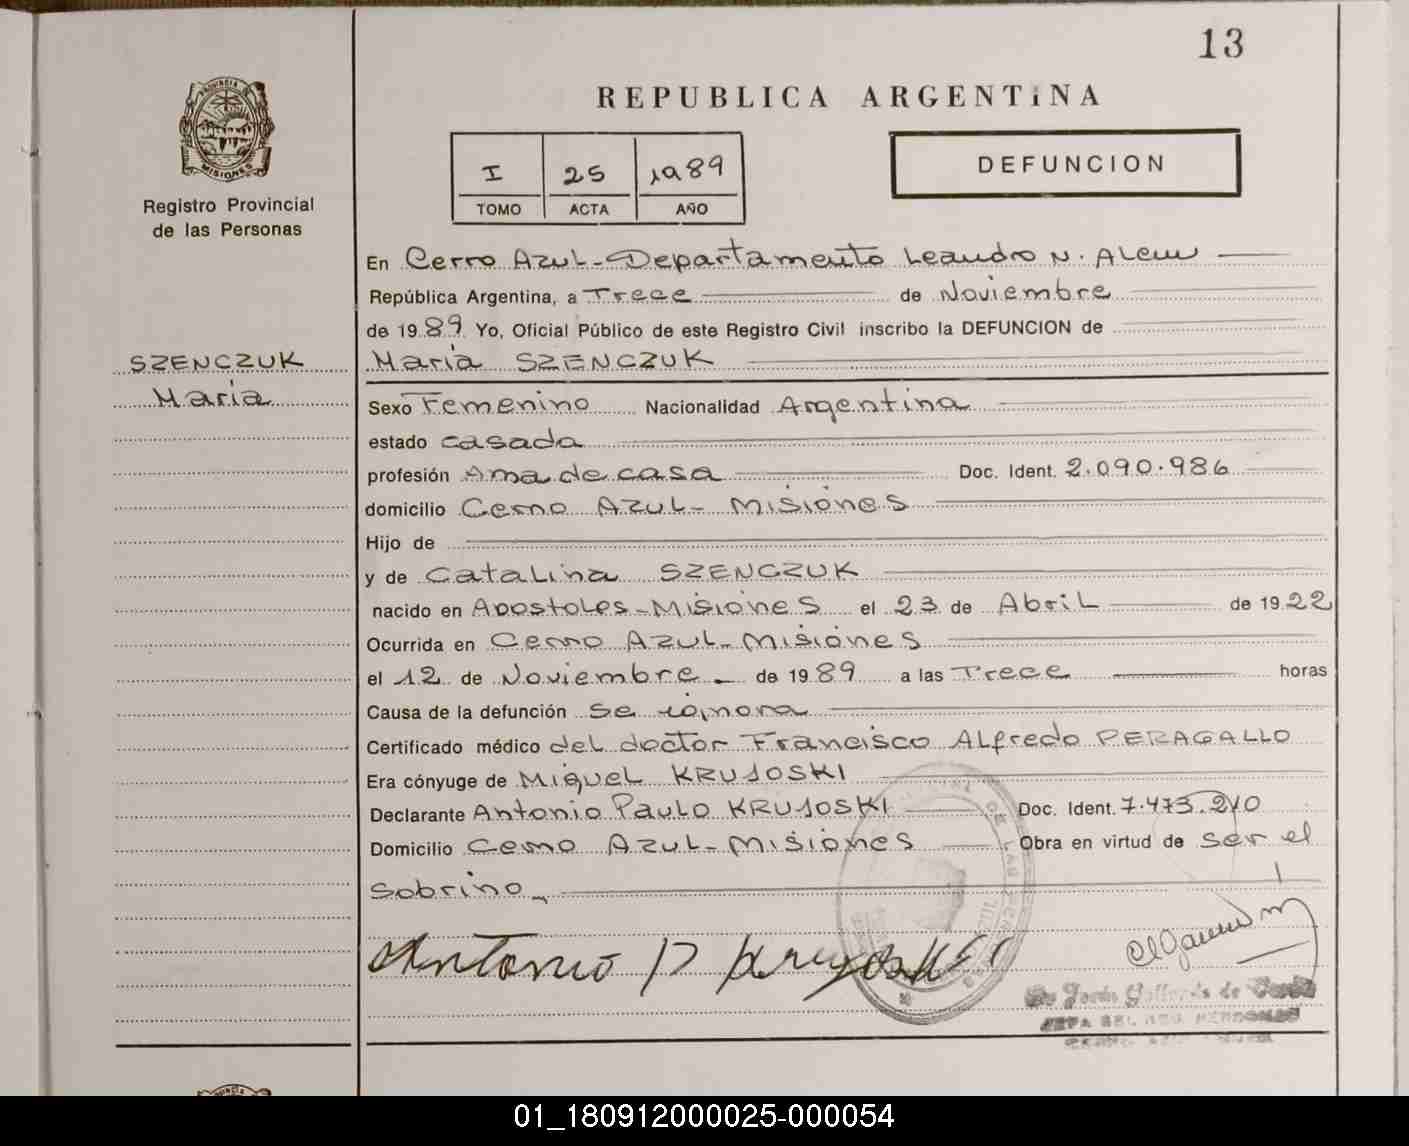 13
PROVINCIA DE
MISIONES
REPUBLICA ARGENTINA
I 25 1989
TOMO ACTA AÑO
DEFUNCION
Registro Provincial
de las Personas
SZENCZUK
Maria
En Cerro Azul - Departamento Leandro N. Alem
República Argentina, a Trece de Noviembre
de 1989. Yo, Oficial Público de este Registro Civil inscribo la DEFUNCION de
Maria SZENCZUK
Sexo Femenino Nacionalidad Argentina
estado casada
profesión Ama de casa Doc. Ident. 2.090.986
domicilio Cerro Azul - Misiones
Hijo de
y de Catalina SZENCZUK
nacido en Apostoles - Misiones el 23 de Abril de 1922
Ocurrida en Cerro Azul - Misiones
el 12 de Noviembre de 1989 a las Trece horas
Causa de la defunción se ignora
Certificado médico del doctor Francisco Alfredo PERAGALLO
Era cónyuge de Miguel KRUJOSKI
Declarante Antonio Paulo KRUJOSKI Doc. Ident. 7.473.210
Domicilio Cerro Azul - Misiones Obra en virtud de ser el
sobrino
Antonio P Krujoski
01_180912000025-000054